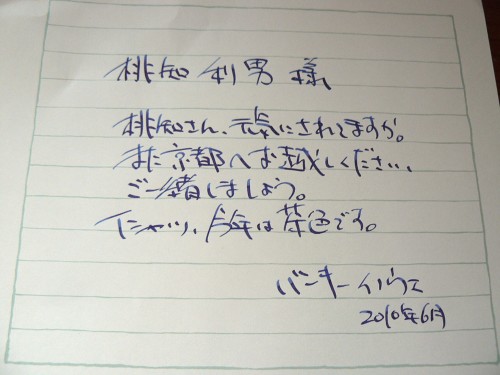 桃知利男 様
桃知さん、元気にされてますか。
また京都へお越しください、
ご一緒しましょう。
Tシャツ、今年は茶色です。
バンキーイノウエ
2010年6月